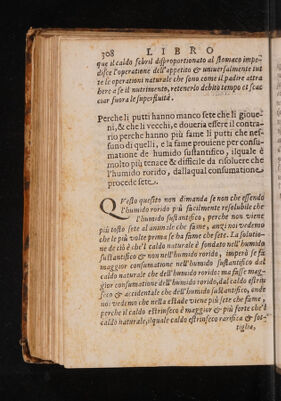 308 LIBRO
que il caldo febril disproportionato al stomaco impe-
disce l'operatione dell'appetito & universalmente tut
te le operationi naturale che sono come il padre attra
here a se il nutrimento, retenerlo debito tempo et scac
ciar fuora le superfluità.
Perche li putti hanno manco sete che li gioue-
ni, & che li vecchi, e doueria esser il contra-
rio perche hanno più fame li putti che nes-
suno di quelli, e la fame prouiene per consu-
matione de humido sustantifico, ilquale è
molto più tenace & difficile da risoluere che
l'humido rorido, dalla qual consumatione
procede sete.
QVesto quesito non dimanda se non che essendo
l'humido rorido più facilmente resolubile che
l'humido sustantifico, perche non viene
più tosto sete al animale che fame, anzi noi vedemo
che le più volte prima se ha fame che sete. La solutio-
ne de ciò è che'l caldo naturale è fondato nell'humido
sustantifico & non nell'humido rorido, imperò se fa
maggior consumatione nell'humido sustantifico dal
caldo naturale che dell'humido rorido: ma fasse mag-
gior consumatione dell'humido rorido, dal caldo estrin
seco & accidentale che dell'humido sustantifico, onde
noi vedemo che nella estade viene più sete che fame,
perche il caldo estrinseco è maggior & più forte che'l
caldo naturale, ilquale caldo estrinseco rarifica & sot-
tiglia,